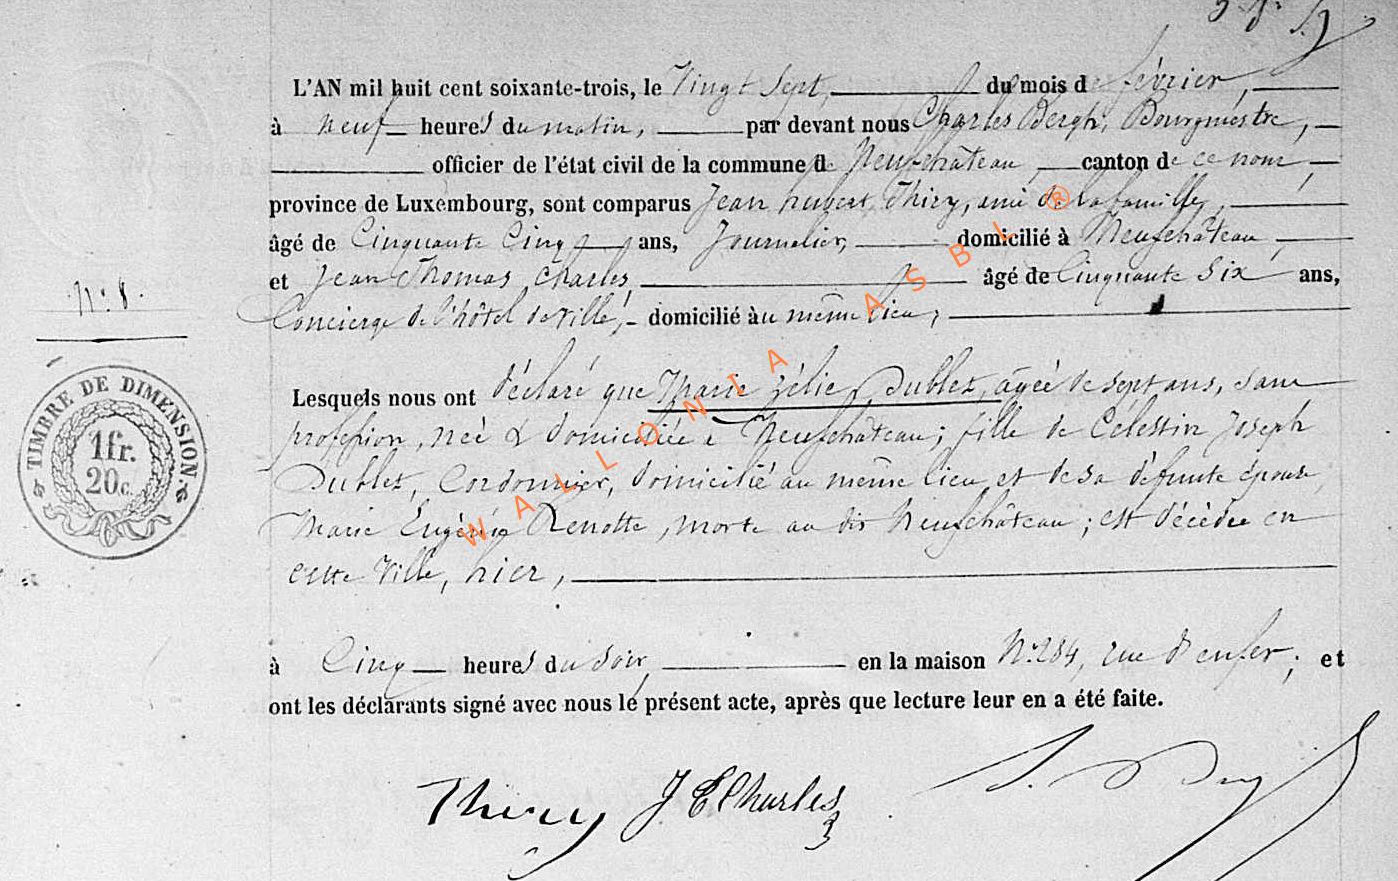 L'AN mil huit cent soixante-trois, le Vingt Sept, du mois de février,
à neuf heures du matin, par devant nous Charles Bergh, Bourgmestre,
officier de l'état civil de la commune de Neufchâteau, canton de ce nom,
province de Luxembourg, sont comparus Jean hubert Thiry, ami de la famille,
âgé de Cinquante Cinq ans, Journalier, domicilié à Neufchâteau,
et Jean Thomas Charles, âgé de Cinquante Six ans,
N° 8.
Concierge de l'hôtel de ville, domicilié au même lieu,
Lesquels nous ont déclaré que Marie Zélie Dublet, âgée de sept ans, sans
profession, née & domiciliée à Neufchâteau; fille de Celestin Joseph
Dublet, Cordonnier, domicilié au même lieu et de sa défunte épouse
Marie Eugénie Renotte, morte au dit Neufchâteau; est décèdée en
cette Ville, hier,
TIMBRE DE DIMENSION.
1fr.
20c.
à Cinq heures du soir, en la maison N° 284, rue d'enfer; et
ont les déclarants signé avec nous le présent acte, après que lecture leur en a été faite.
Thiry J T Charles
WALLONIA ASBL ®